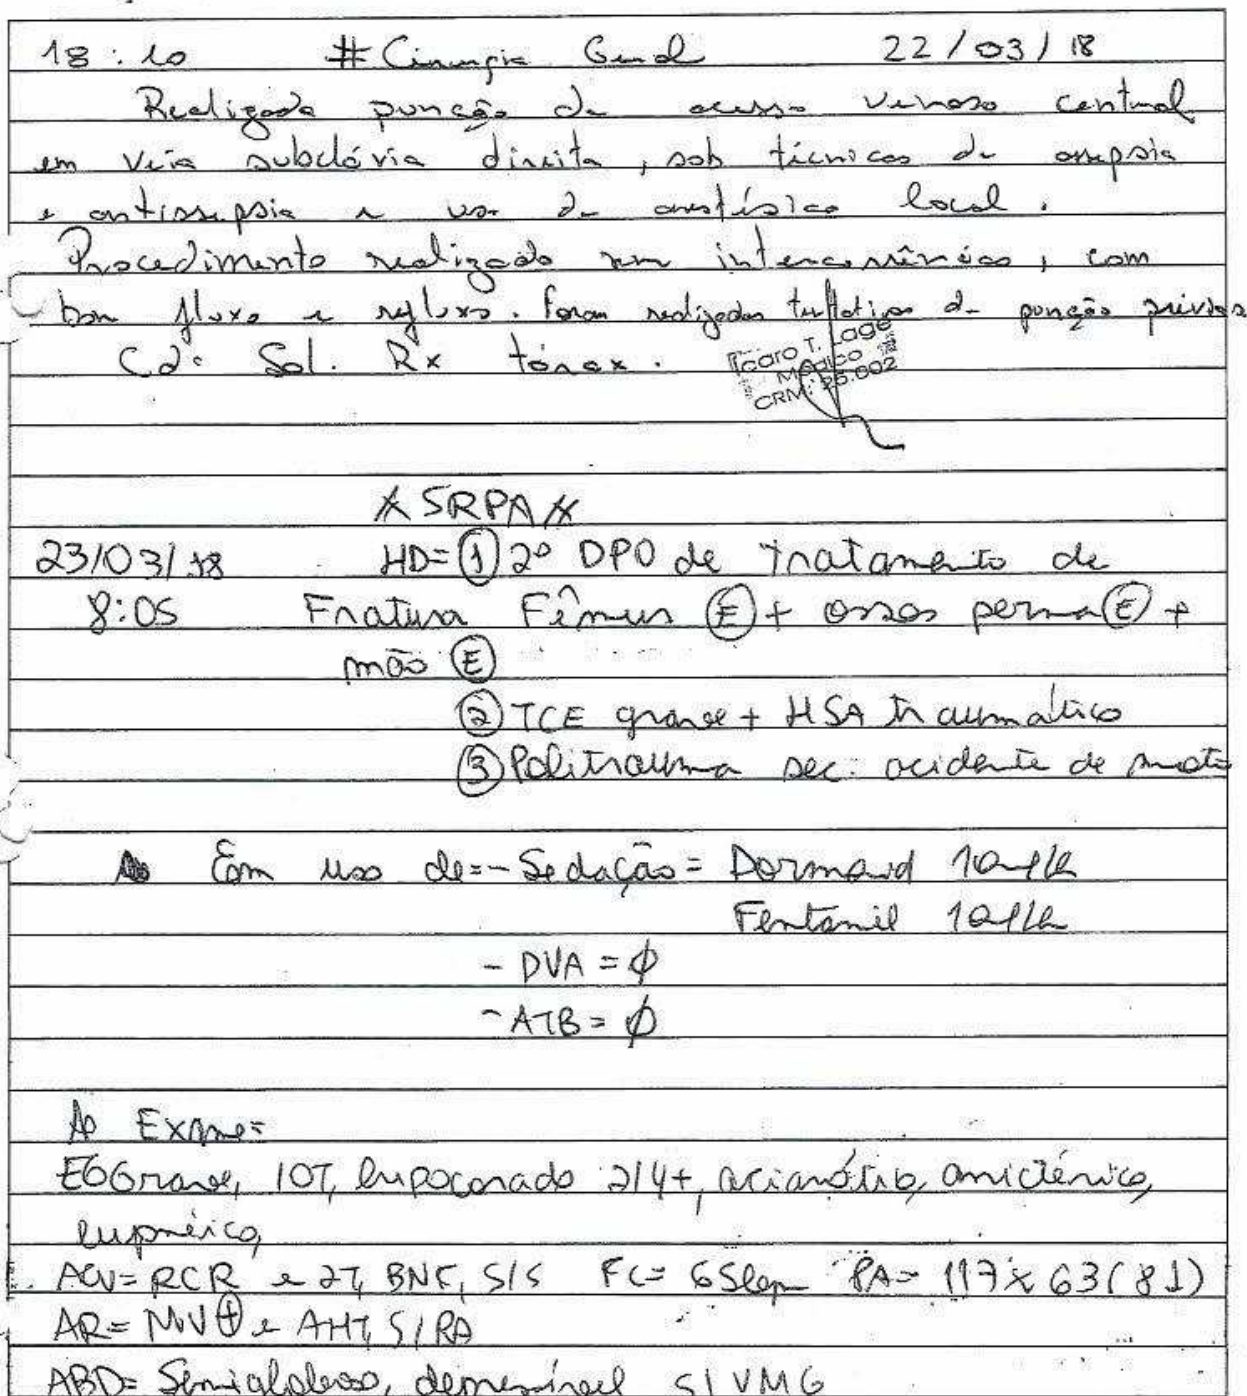 18:10 # Cirurgia Geral 22/03/18
Realizada punção de acesso venoso central
em veia subclávia direita, sob técnicas de assepsia
e antissepsia e uso de anestésico local.
Procedimento realizado sem intercorrências, com
bom fluxo e refluxo. Foram realizadas tentativas de punção prévias
Cd: Sol. Rx tórax.
Ícaro T. Lage
Médico
CRM: 25.602
# SRPA #
23/03/18 HD= ① 2º DPO de tratamento de
8:05 Fratura Fêmur Ⓔ + ossos perna Ⓔ +
mão Ⓔ
② TCE grave + HSA traumático
③ Politrauma sec. acidente de moto
Em uso de= - Sedação= Dormonid 10ml/h
Fentanil 10ml/h
- DVA = ∅
- ATB = ∅
Ao Exame=
EGGrave, IOT, hipocorado 2/4+, acianótico, anictérico,
eupneico,
ACV= RCR e 2T, BNF, S/S FC= 65bpm PA= 117x63(81)
AR= MV⊕ e AHT, S/RA
ABD= Semigloboso, depressível S/VMG